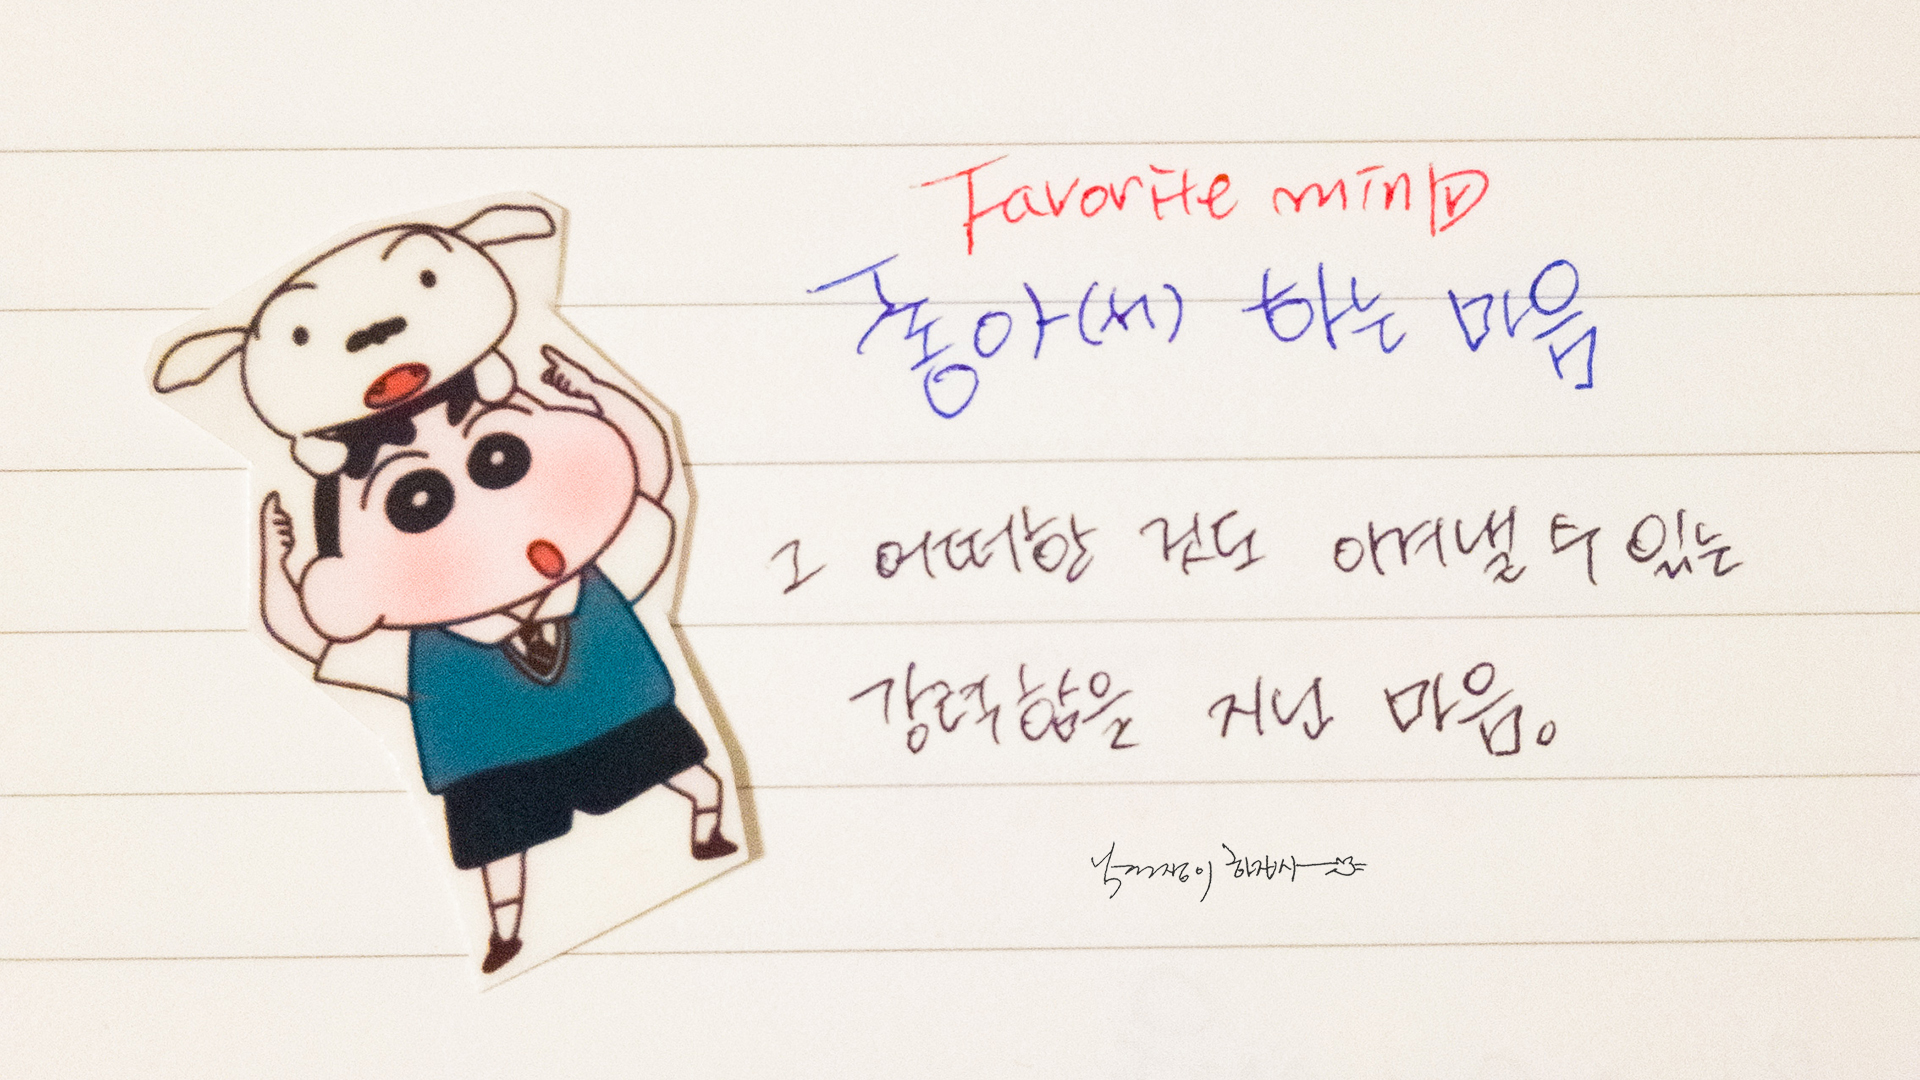 Favorite minD
좋아(서) 하는 마음
그 어떠한 것도 이겨낼 수 있는
강력함을 지닌 마음。